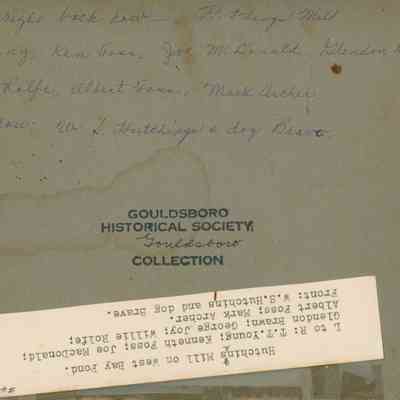 right back row
ng, Ken Foss, Joe McDonald, Glendon
Rolfe, Albert Foss, Mark Archer
row: W S Hutchings & dog Brave.
GOULDSBORO
HISTORICAL SOCIETY,
Gouldsboro
COLLECTION
Hutching Mill on West Bay Pond.
L to R: T.T.Young; Kenneth Foss; Joe MacDonald;
Glendon Brawn; George Joy; Willie Rolfe;
Albert Foss; Mark Archer.
Front: W.S.Hutchins and dog Brave.